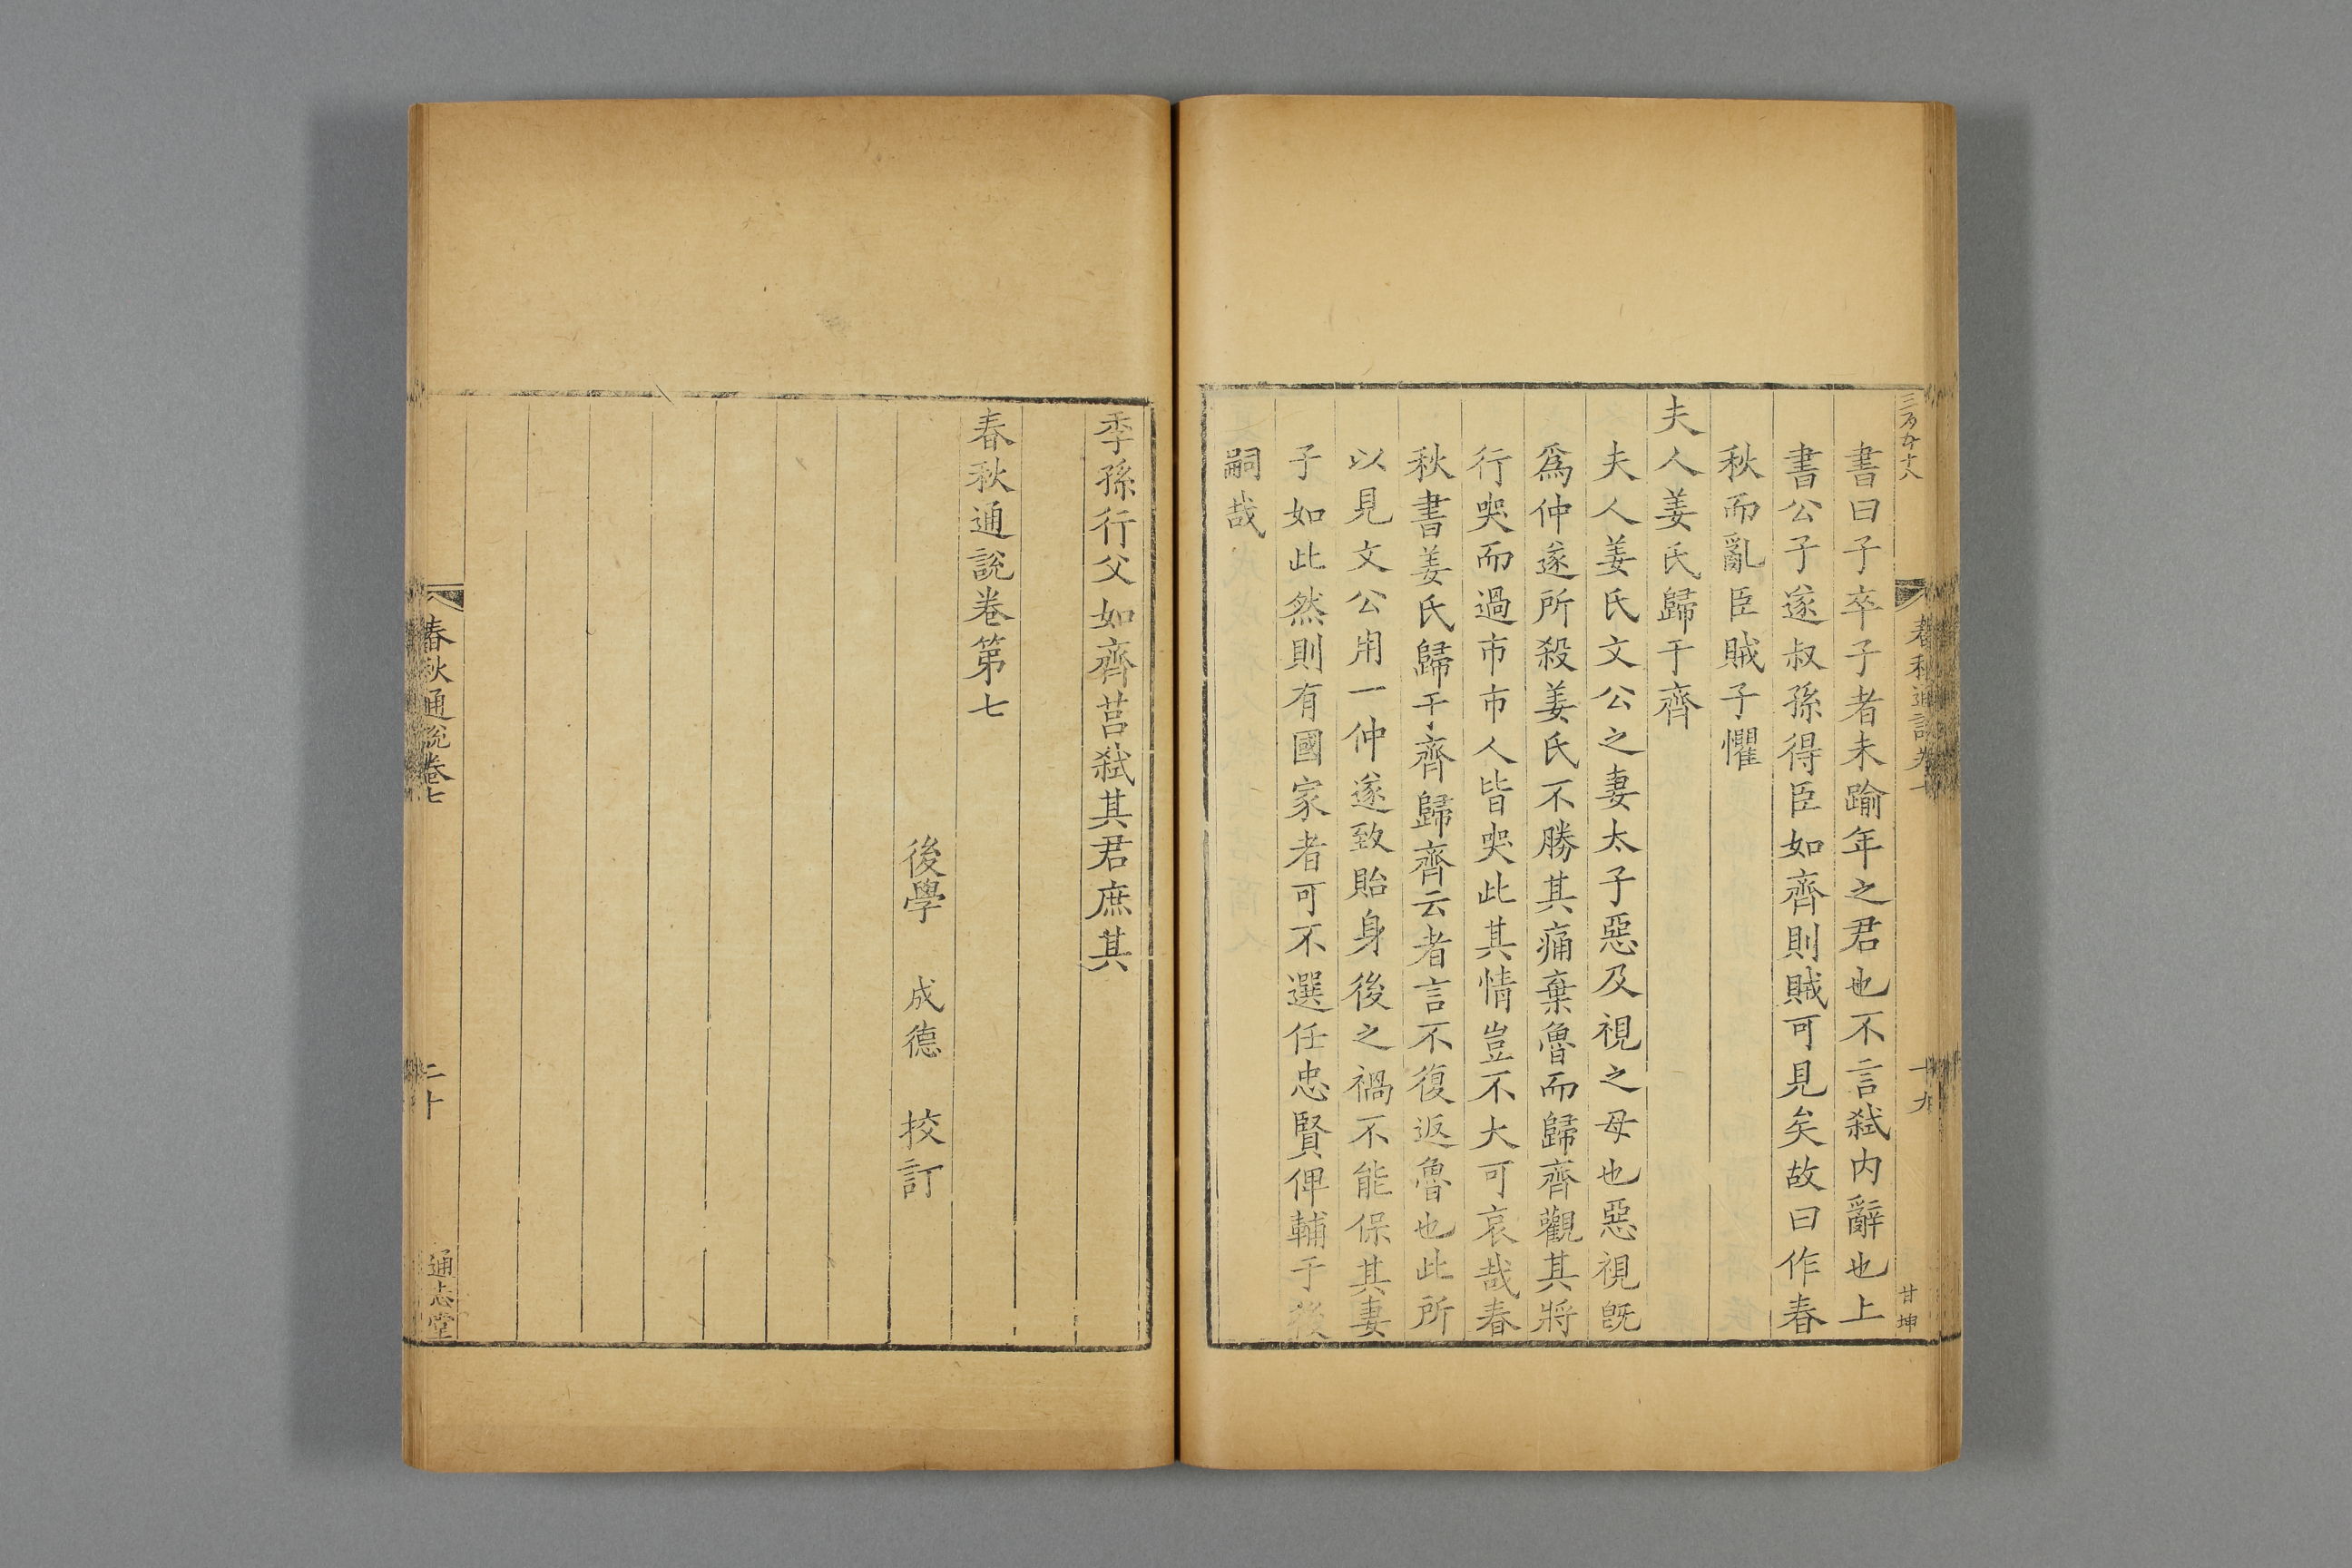 三百五十八
春秋通說卷
十九
甘坤
書曰子卒子者未踰年之君也不言弑内辭也上
書公子遂叔孫得臣如齊則賊可見矣故曰作春
秋而亂臣賊子懼
夫人姜氏歸于齊
夫人姜氏文公之妻太子惡及視之母也惡視旣
爲仲遂所殺姜氏不勝其痛棄魯而歸齊觀其將
行哭而過市市人皆哭此其情豈不大可哀哉春
秋書姜氏歸于齊歸齊云者言不復返魯也此所
以見文公用一仲遂致貽身後之禍不能保其妻
子如此然則有國家者可不選任忠賢俾輔于後
嗣哉
季孫行父如齊莒弑其君庶其
春秋通說卷第七
後學 成德 挍訂
春秋通說卷七
二十
通志堂